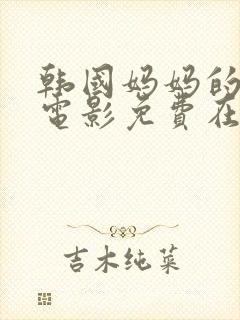 韩国妈妈的
電影免費在
吉木纯菜